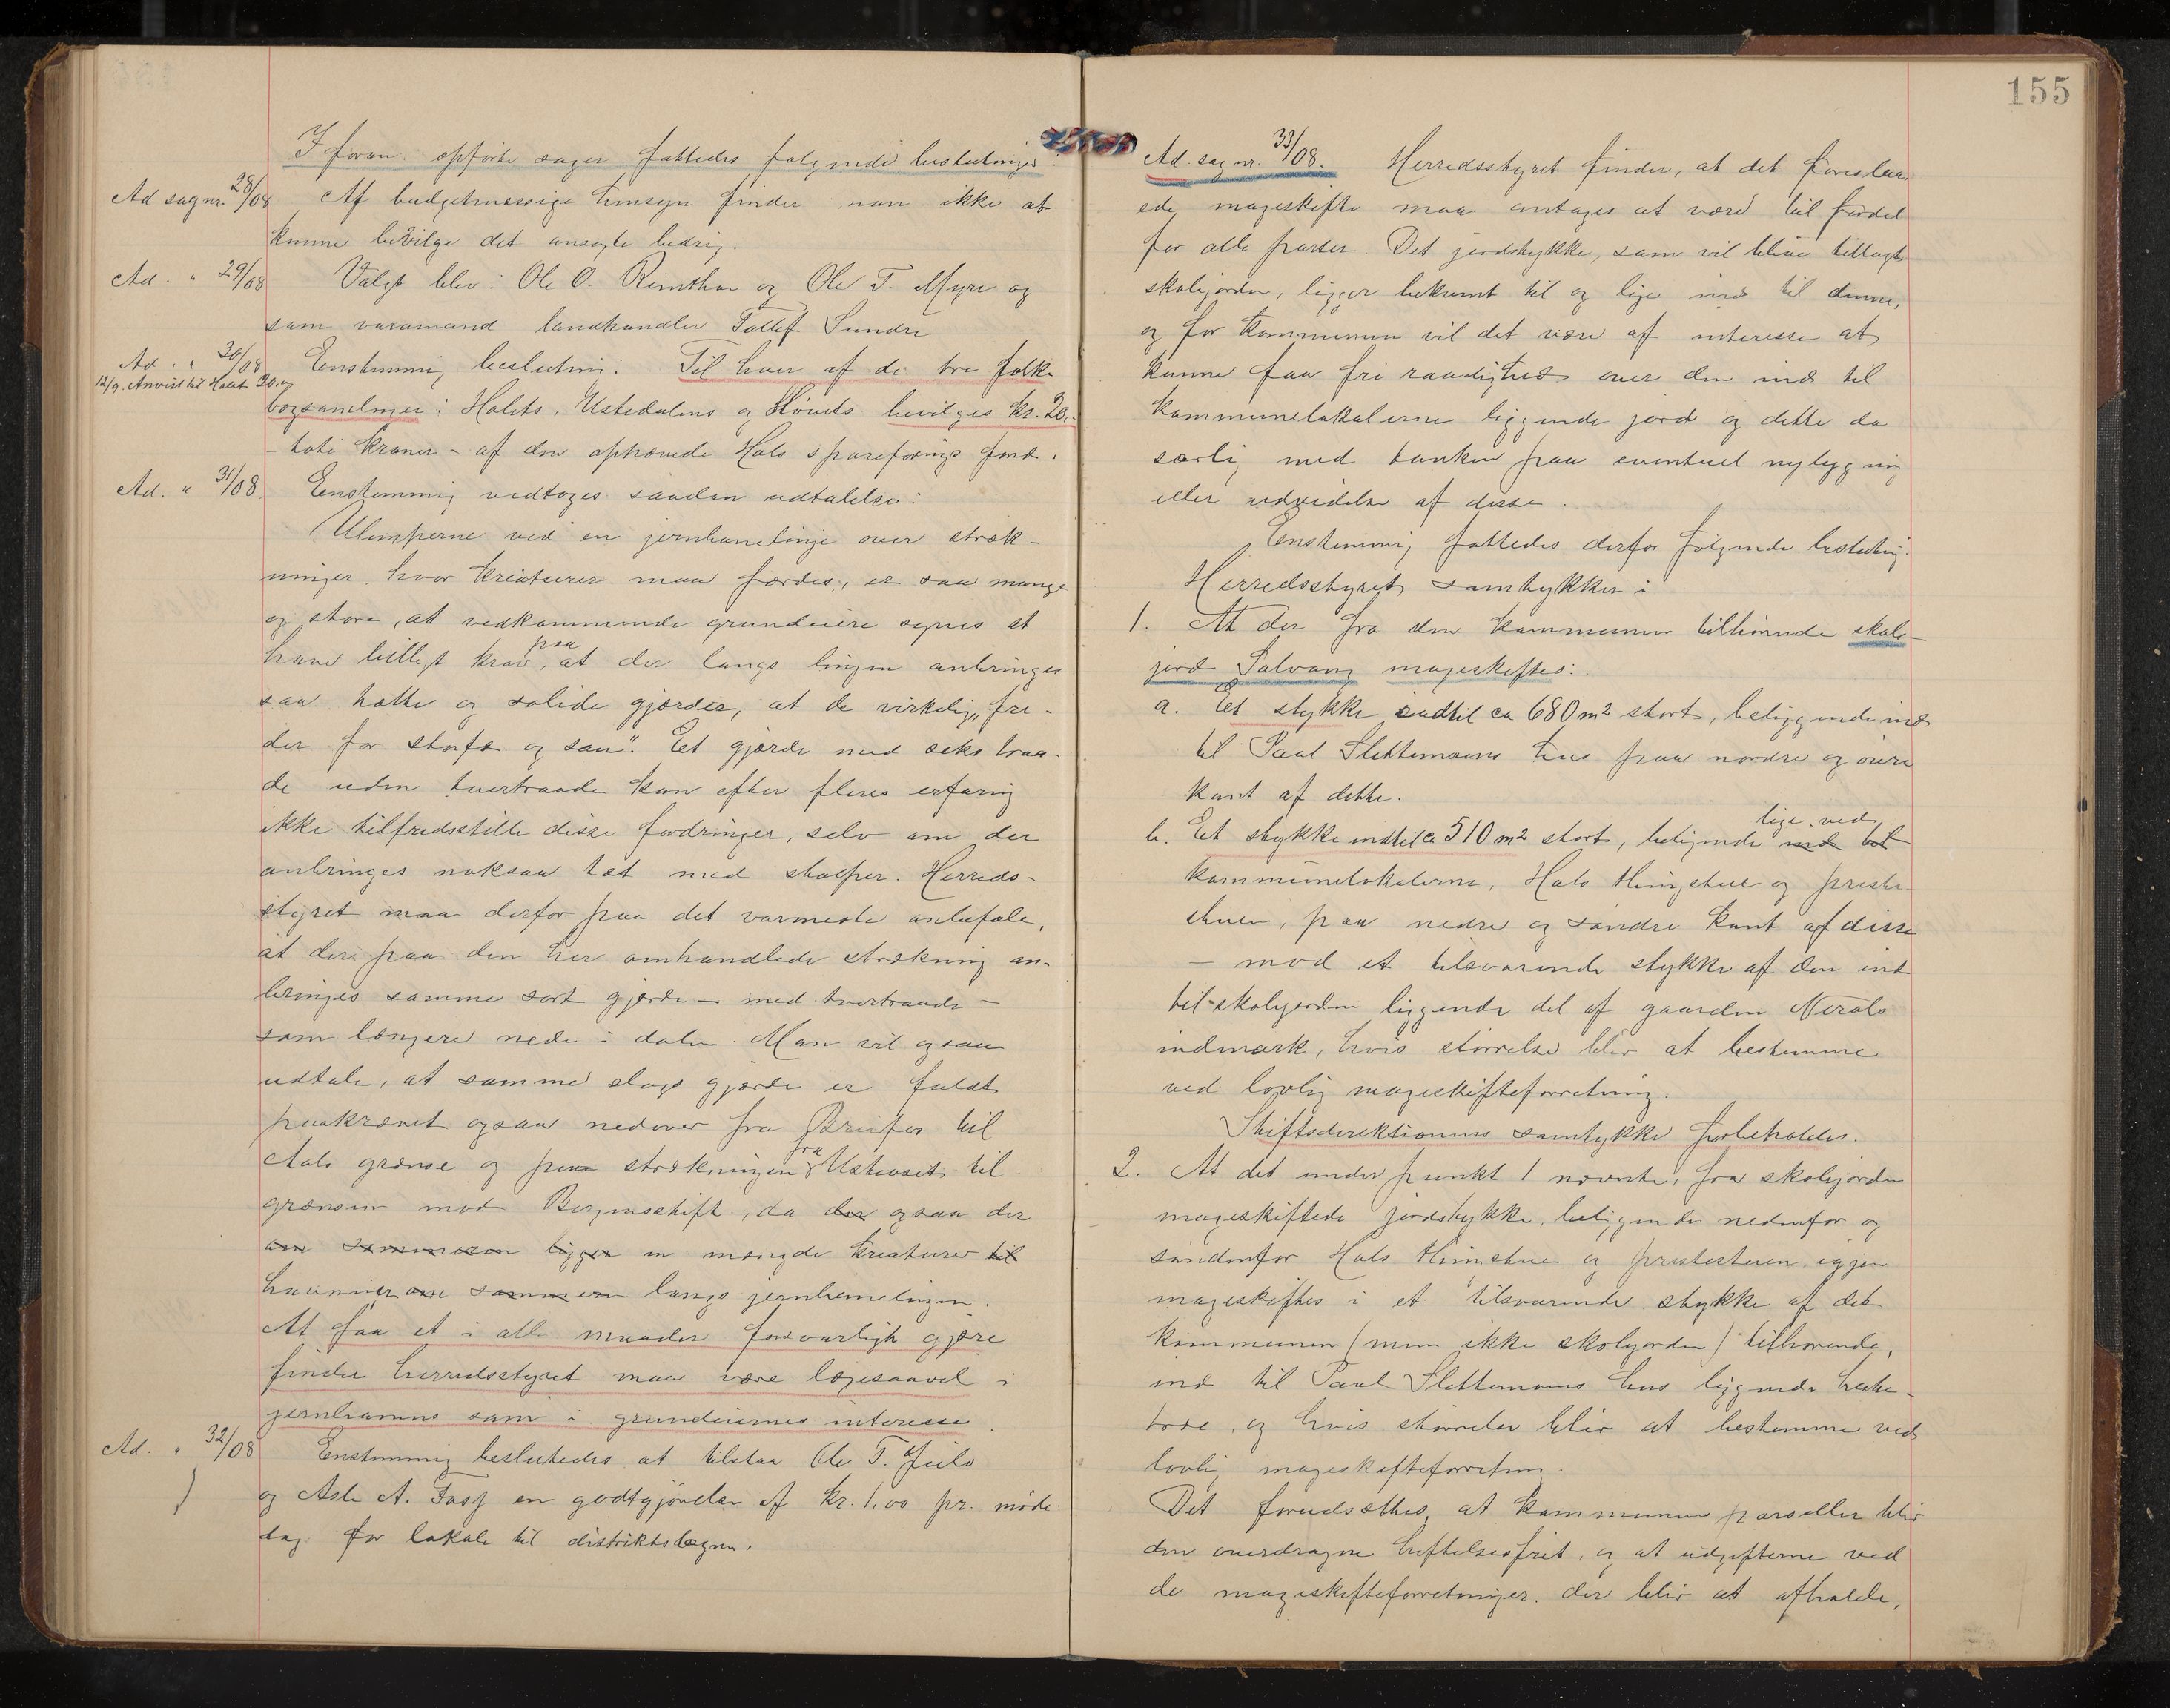 I foran opførte sager fattedes følgende beslutninger:
Ad sag nr. 28/08 Af budgetmæssige hensyn finder man ikke at
kunne bevilge det ansøgte bidrag.
Ad. " 29/08 Valgt blev: Ole O. Rimthun og Ole T. Myre og
som varamand landhandler Tollef Sundre
Ad. " 30/08 Enstemmig beslutning: Til hver af de tre folke
12/9. Anvist til Holet 20.
bogsamlinger: Holets, Ustedalens og Høvets bevilges kr. 20,-
- toti kroner - af den ophævede Hols spareforenings fond.
Ad. " 31/08 Enstemmig vedtoges saadan udtalelse:
Ulemperne ved en jernbanelinje over stræk-
ninger, hvor kreaturer maa færdes, er saa mange
og store, at vedkommende grundeiere synes at
have billigt krav paa, at der langs linjen anbringes
saa tætte og solide gjærder, at de virkelig „fre-
der for storfæ og sau". Et gjærde med seks traa-
de uden tvertraade kan efter fleres erfaring
ikke tilfredsstille disse fordringer, selv om der
anbringes noksaa tæt med stolper. Herreds-
styret maa derfor paa det varmeste anbefale,
at der paa den her omhandlede strækning an-
bringes samme sort gjærde - med tvertraade -
som længere nede i dalen. Man vil ogsaa
udtale, at samme slags gjærde er fuldt
paakrævet ogsaa nedover fra til
Aals grænse og paa strækningen fra Ustaoset til
grænsen mod Bergens stift, da der ogsaa der
om sommeren ligger en mængde kreaturer til
havning om sommeren langs jernbanelinjen.
At faa et i alle maader forsvarligt gjære
finder herredsstyret maa være ligesaavel i
jernbanens som i grundeiernes interesse.
Ad. " 32/08 Enstemmig besluttedes at tilstaa Ole T. Geilo
og Asle A. en godtgjørelse af kr. 1,00 pr. møde-
dag for lokale til distriktslægen.
155
Ad. sag nr. 33/08. Herredsstyret finder, at det foreslaa-
ede mageskifte maa antages at være til fordel
for alle parter. Det jordstykke, som vil blive tillagt
skolejorden, ligger bekvemt til og lige ind til denne,
og for kommunen vil det være af interesse at
kunne faa fri raadighed over den ind til
kommunelokalerne liggende jord og dette da
særlig med tanken paa eventuel nybygning
eller udvidelse af disse.
Enstemmig fattedes derfor følgende beslutning:
Herredsstyret samtykker i
1. At der fra den kommunen tilhørende skole-
jord Solvang mageskiftes:
a. Et stykke indtil ca 680 m2 stort, beliggende ind
til Paul Slettemoens hus paa nordre og øvre
kant af dette.
b. Et stykke indtil ca 510 m2 stort, beliggende lige ved ind til
kommunelokalerne, Hols Thingstue og preste-
stuen, paa nedre og søndre kant af disse
- mod et tilsvarende stykke af den ind
til skolejorden liggende del af gaarden Nerals
indmark, hvis størrelse blir at bestemme
ved lovlig mageskifteforretning.
Stiftsdirektionens samtykke forbeholdes.
2. At det under punkt 1 nævnte, fra skolejorden
mageskiftede jordstykke, beliggende nedenfor og
søndenfor Hols Thingstue og prestestuen igjen
mageskiftes i et tilsvarende stykke af det
kommunen (men ikke skolejorden) tilhørende,
ind til Paul Slettemoens hus liggende
og hvis størrelse blir at bestemme ved
lovlig mageskifteforretning.
Det forudsættes, at kommunens parseller blir
den overdragne heftelsesfrit, og at udgifterne ved
de mageskifteforretninger, der blir at afholde,